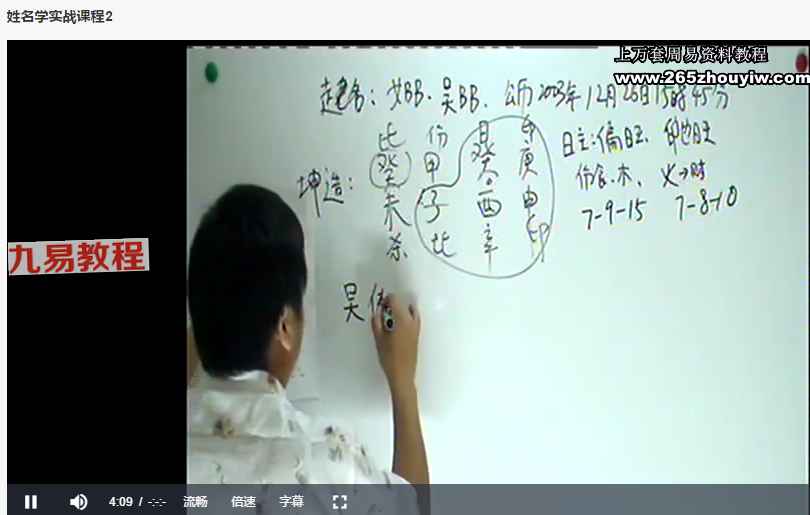 姓名学实战课程2
上万套周易资料教程
www.265zhouyiw.com
起名：女BB、吴BB、公历2003年12月26日15时45分
比 伤 日 印
坤造：癸 甲 癸 庚
未 子 酉 申
杀 比 辛 印
日主：偏旺、印比旺
伤食、木、火→财
7-9-15 7-8-10
吴
九易教程
4:09 / -:-:- 流畅 倍速 字幕